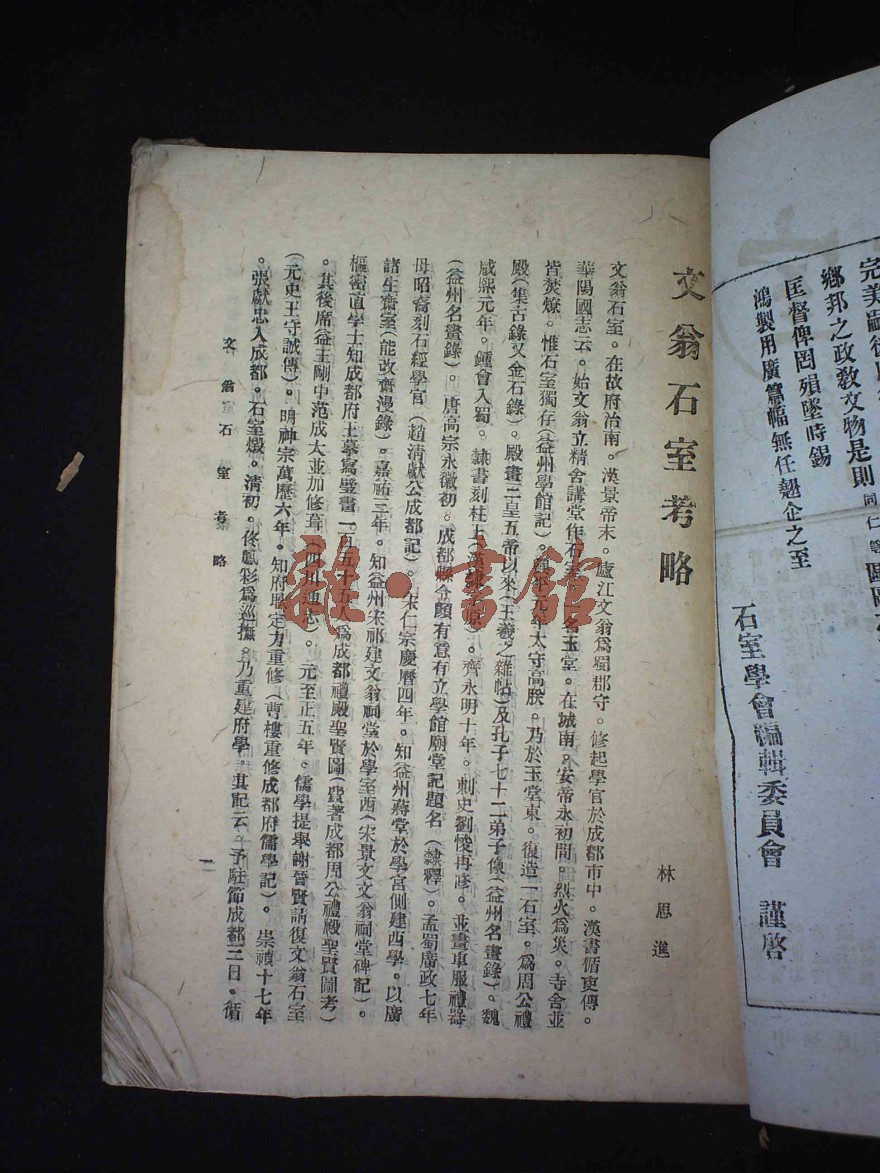 完美嗣後
鄉邦之政敎文物是則同仁等
匡督俾罔殞墜時錫
鴻製用廣篇幅無任翹企之至
石室學會編輯委員會 謹啓
文翁石室考略
林思進
文翁石室。在故府治南。漢景帝末。廬江文翁爲蜀郡守。修起學官於成都市中。漢書循吏傳。
華陽國志云。始文翁立精舍講堂作石室。一名玉堂。在城南。安帝永初間。烈火爲災。寺舍並
皆焚燎。惟石室獨存(益州學館記)。興平元年太守高朕。乃於玉堂東。復造一石室。爲周公禮
殿(集古錄又金石錄)。殿畫三皇五帝以來(王羲之雜帖)及孔子七十二弟子像(益州名畫錄)。魏
咸熙元年。鍾會入蜀。隸書刻柱上(漢隸字原)。齊永明十年。刺史劉悛再修。並畫車服禮器
(益州名畫錄)。唐高宗永徽初。成都縣令顏有意有立學館廟堂記題名(隸釋)。孟蜀廣政七年
母昭裔刻石經學官(趙淸獻公成都記)。宋仁宗慶曆四年。知益州蔣堂於學宮側建西學。以廣
諸生齋室(能改齋漫錄)。嘉祐三年。知益州宋祁建文翁祠堂於學室西(宋景文文翁祠堂碑記)。
樞密直學士知成都府王摹寫壁畫一百五十五人爲成都禮殿聖賢圖(費著成都周公禮殿聖賢圖考)
。其後席益王剛中范成大並加修葺(四川通志)。元至正五年。儒學提舉謝晉賢請復文翁石室
(元史王守誠傳)。明神宗萬曆六年。知府耿定力重修(曹樓重修成都府儒學記)。崇禎十七年
。張獻忠入成都。石室燬。淸初。佟鳳彩爲巡撫。乃重建府學。其記云。予駐節成都三日。循
文翁石室考略
一
雜·書館